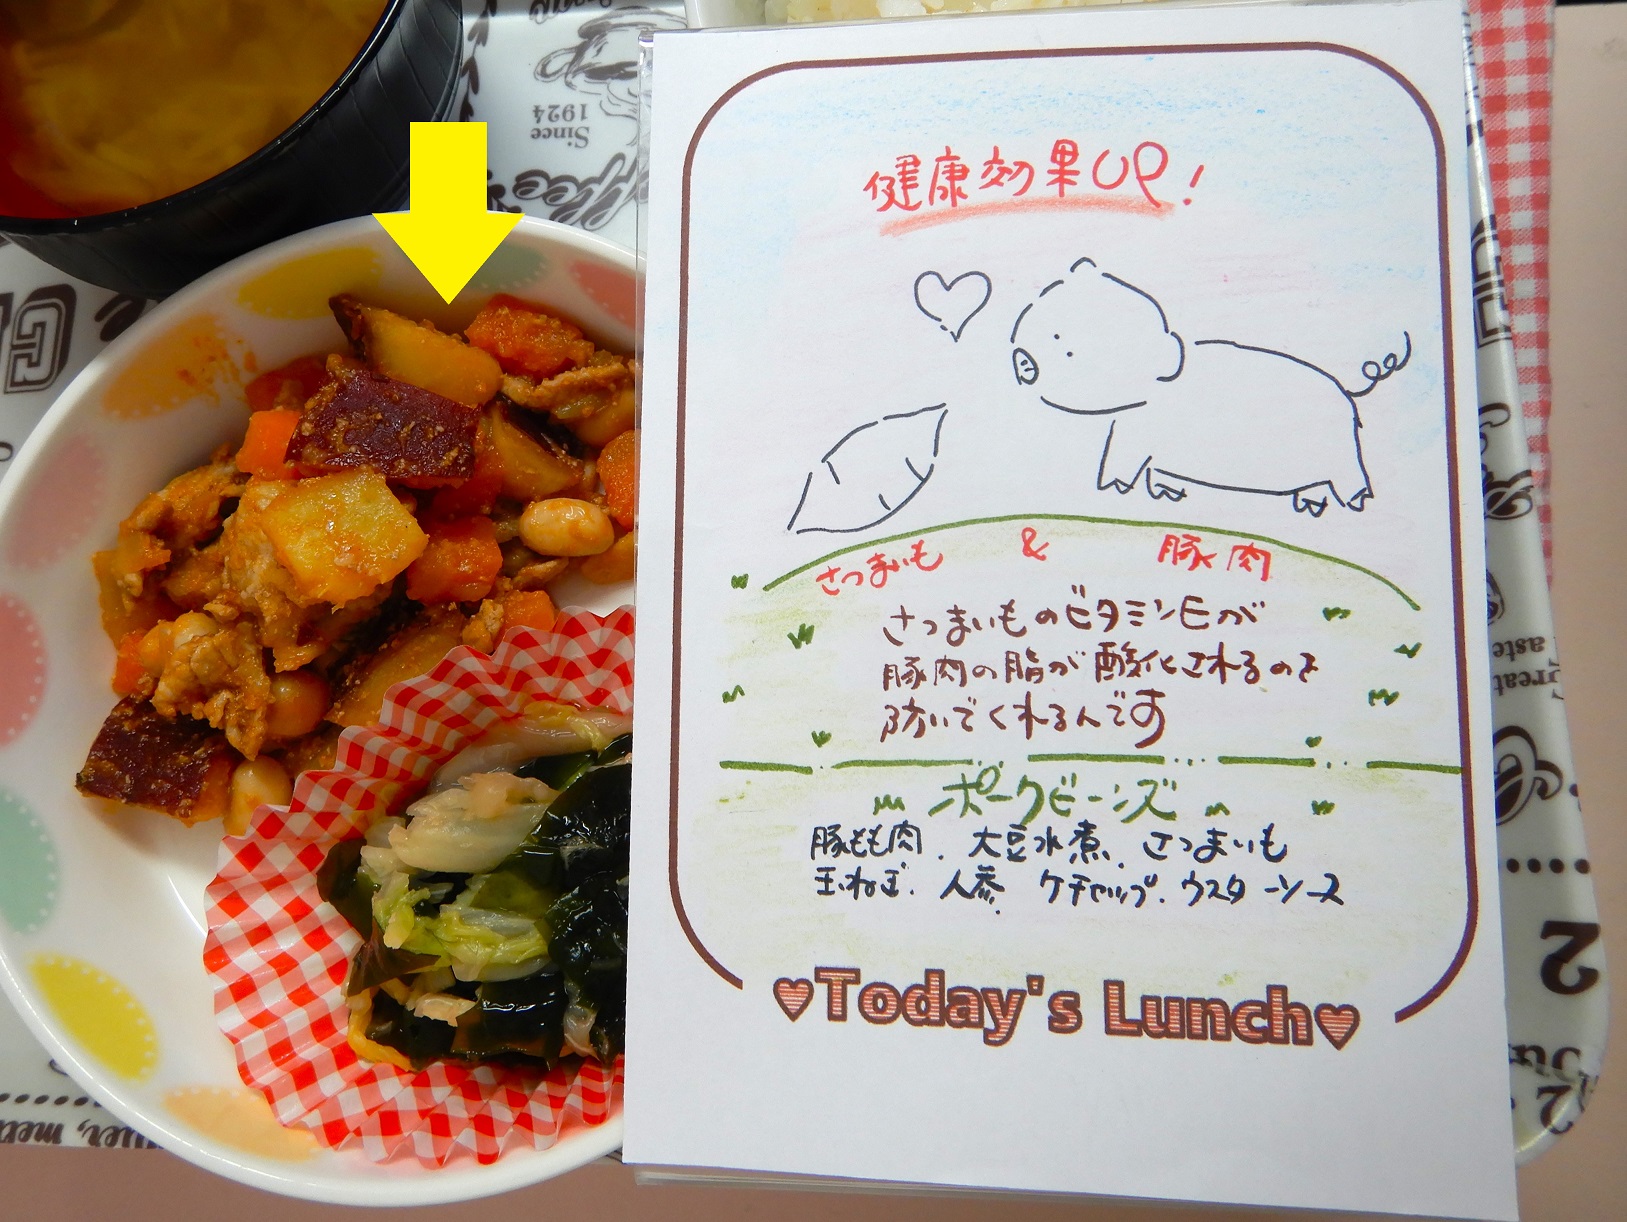 Since
1924
健康効果UP!
さつまいも & 豚肉
さつまいものビタミンEが
豚肉の脂が酸化されるのを
防いでくれるんです
ポークビーンズ
豚もも肉、大豆水煮、さつまいも
玉ねぎ、人参、ケチャップ、ウスターソース
Today's Lunch